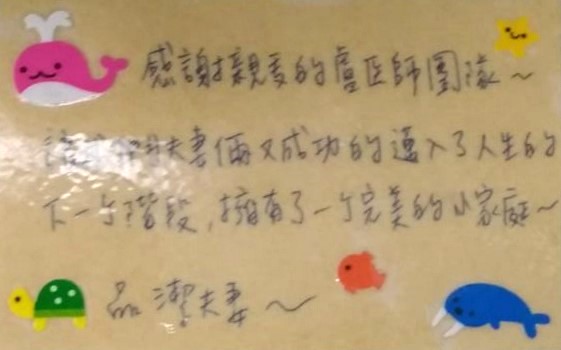 感謝親愛的盧醫師團隊～
讓我們夫妻倆又成功的邁入了人生的
下一个階段，擁有了一个完美的小家庭～
品潔夫妻～